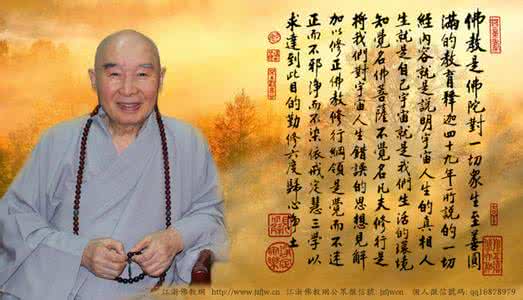 佛教是佛陀對一切眾生至善圓
滿的教育釋迦四十九年所說的一切
經內容就是說明宇宙人生的真相人
生就是自己宇宙就是我們生活的環境
知覺名佛菩薩不覺名凡夫修行是
將我們對宇宙人生錯誤的思想見解
加以修正佛教修行綱領是覺而不迷
正而不邪淨而不染依戒定慧三學以
求達到此目的勤修六度歸心淨土
佛教網 佛教網 微信號 個人微信號碼: qq16878979